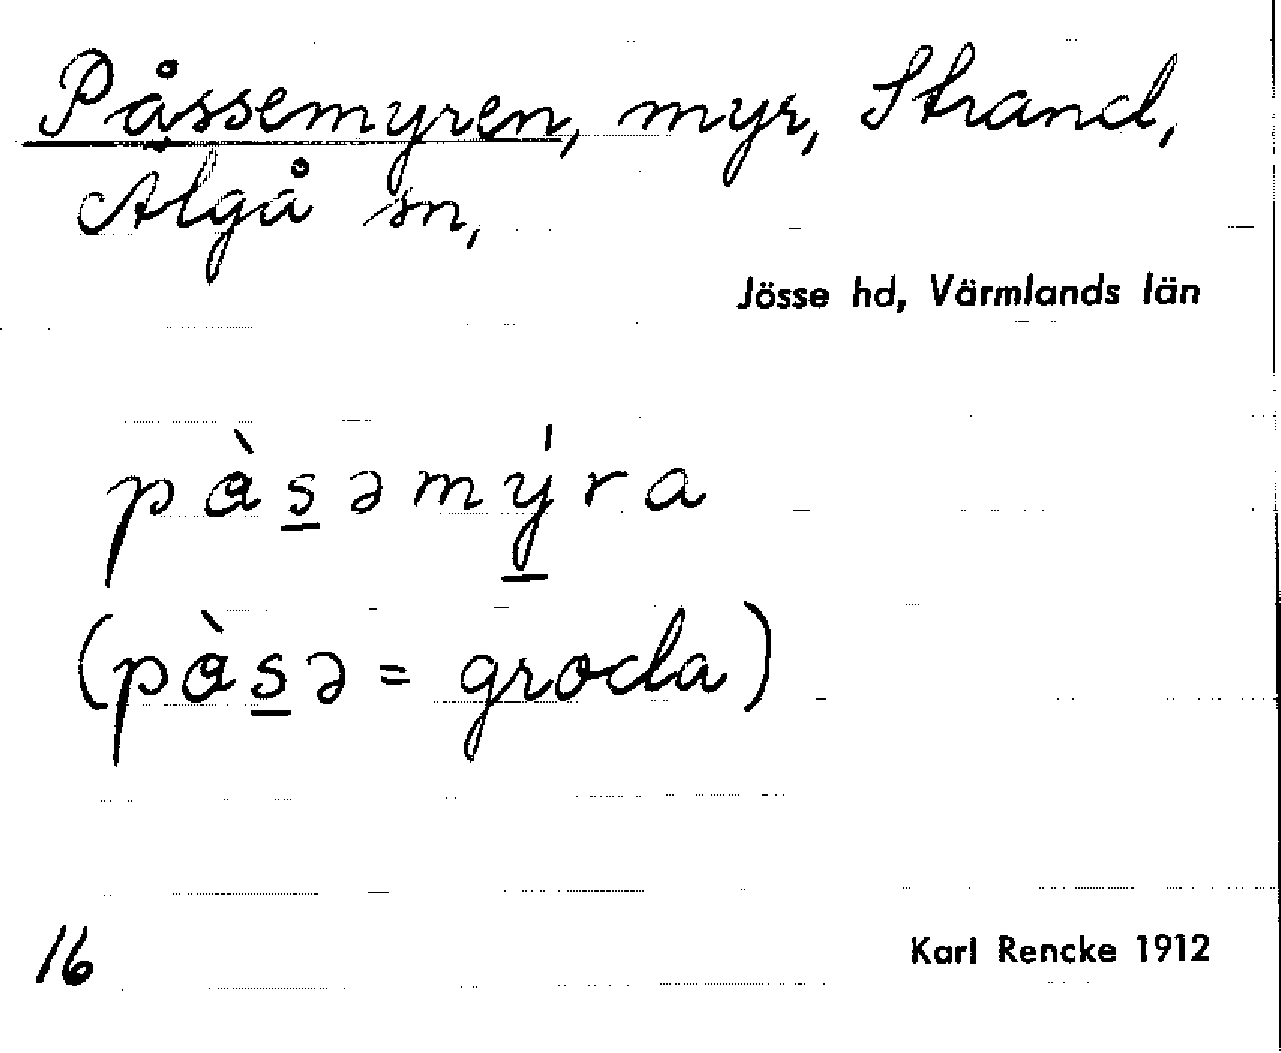 Påssemyren, myr, Strand,
Älgå sn,
Jösse hd, Värmlands län
pɑ̀s̲əmý̲ra
(pɑ̀s̲ə = groda)
16
Karl Rencke 1912